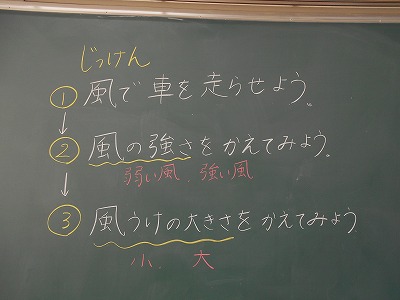 じっけん
① 風で車を走らせよう。
↓
② 風の強さをかえてみよう。
弱い風、強い風
↓
③ 風うけの大きさをかえてみよう
小、大